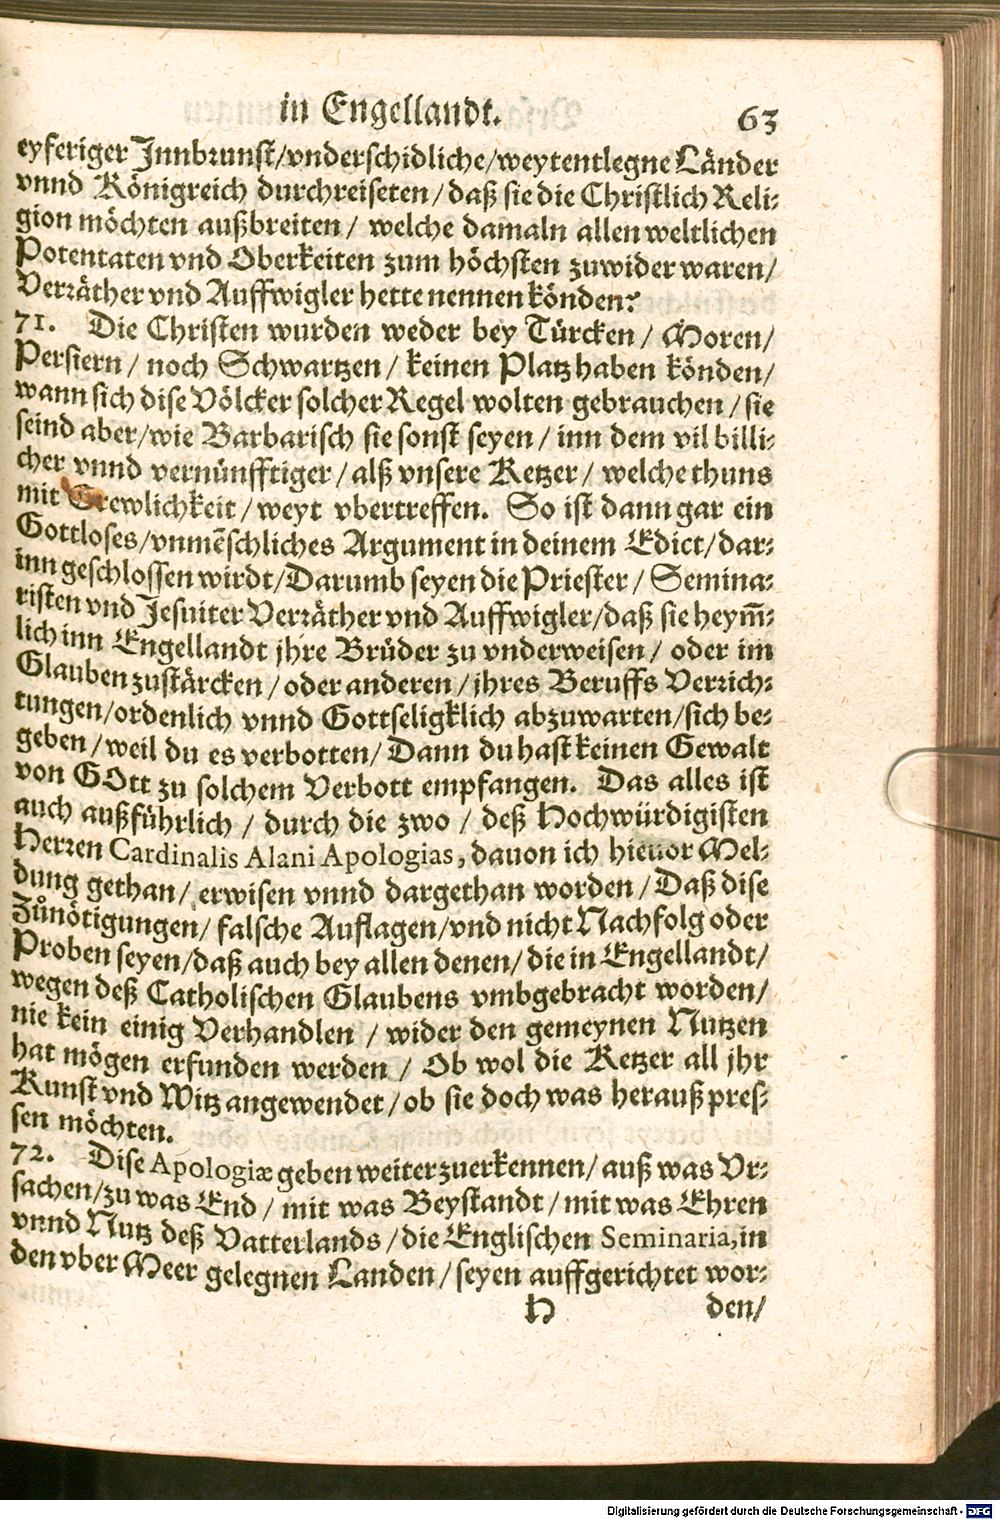 in Engellandt. 63
eyferiger Jnnbrunst/vnderschidliche/weytentlegne Länder
vnnd Königreich durchreiseten/daß sie die Christlich Reli-
gion möchten außbreiten/ welche damaln allen weltlichen
Potentaten vnd Oberkeiten zum höchsten zuwider waren/
Verräther vnd Auffwigler hette nennen könden?
71. Die Christen wurden weder bey Türcken/ Moren/
Persiern/ noch Schwartzen/ keinen Platz haben könden/
wann sich dise Völcker solcher Regel wolten gebrauchen/sie
seind aber/wie Barbarisch sie sonst seyen/ inn dem vil billi-
cher vnnd vernünfftiger/ alß vnsere Ketzer/ welche thuns
mit Grewlichkeit/weyt vbertreffen. So ist dann gar ein
Gottloses/vnmẽschliches Argument in deinem Edict/dar-
inn geschlossen wirdt/Darumb seyen die Priester/ Semina-
risten vnd Jesuiter Verräther vnd Auffwigler/daß sie heym̃-
lich inn Engellandt jhre Brüder zu vnderweisen/ oder im
Glauben zustärcken/oder anderen/jhres Beruffs Verrich-
tungen/ordenlich vnnd Gottseligklich abzuwarten/sich be-
geben/weil du es verbotten/Dann du hast keinen Gewalt
von GOtt zu solchem Verbott empfangen. Das alles ist
auch außführlich/ durch die zwo/ deß Hochwürdigisten
Herren Cardinalis Alani Apologias, dauon ich hieuor Mel-
dung gethan/ erwisen vnnd dargethan worden/Daß dise
Zůnötigungen/ falsche Auflagen/vnd nicht Nachfolg oder
Proben seyen/daß auch bey allen denen/die in Engellandt/
wegen deß Catholischen Glaubens vmbgebracht worden/
nie kein einig Verhandlen / wider den gemeynen Nutzen
hat mögen erfunden werden / Ob wol die Ketzer all jhr
Kunst vnd Witz angewendet/ob sie doch was herauß pres-
sen möchten.
72. Dise Apologiæ geben weiter zuerkennen/auß was Vr-
sachen/zu was End / mit was Beystandt/mit was Ehren
vnnd Nutz deß Vatterlands/die Englischen Seminaria, in
den vber Meer gelegnen Landen/seyen auffgerichtet wor-
H den/
Digitalisierung gefördert durch die Deutsche Forschungsgemeinschaft - DFG